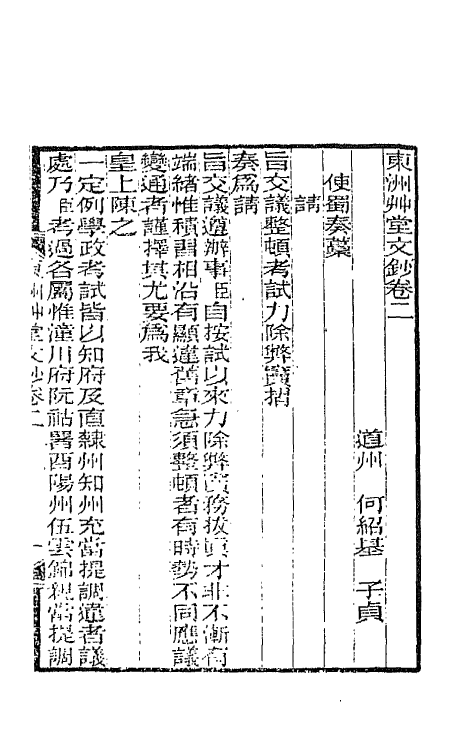 東洲艸堂文鈔卷二
道州　何紹基　子貞
使蜀奏藁
請
旨交議整頓考試力除弊竇摺
奏爲請
旨交議遵辦事臣自按試以來力除弊竇務拔眞才非不漸有
端緒惟積習相沿有顯違舊章急須整頓者有時勢不同應議
變通者謹擇其尤要爲我
皇上陳之
一定例學政考試皆以知府及直隸州知州充當提調違者議
處乃臣考過各屬惟潼川府阮祜署酉陽州伍雲錦親當提調
東洲艸堂文鈔卷二　一